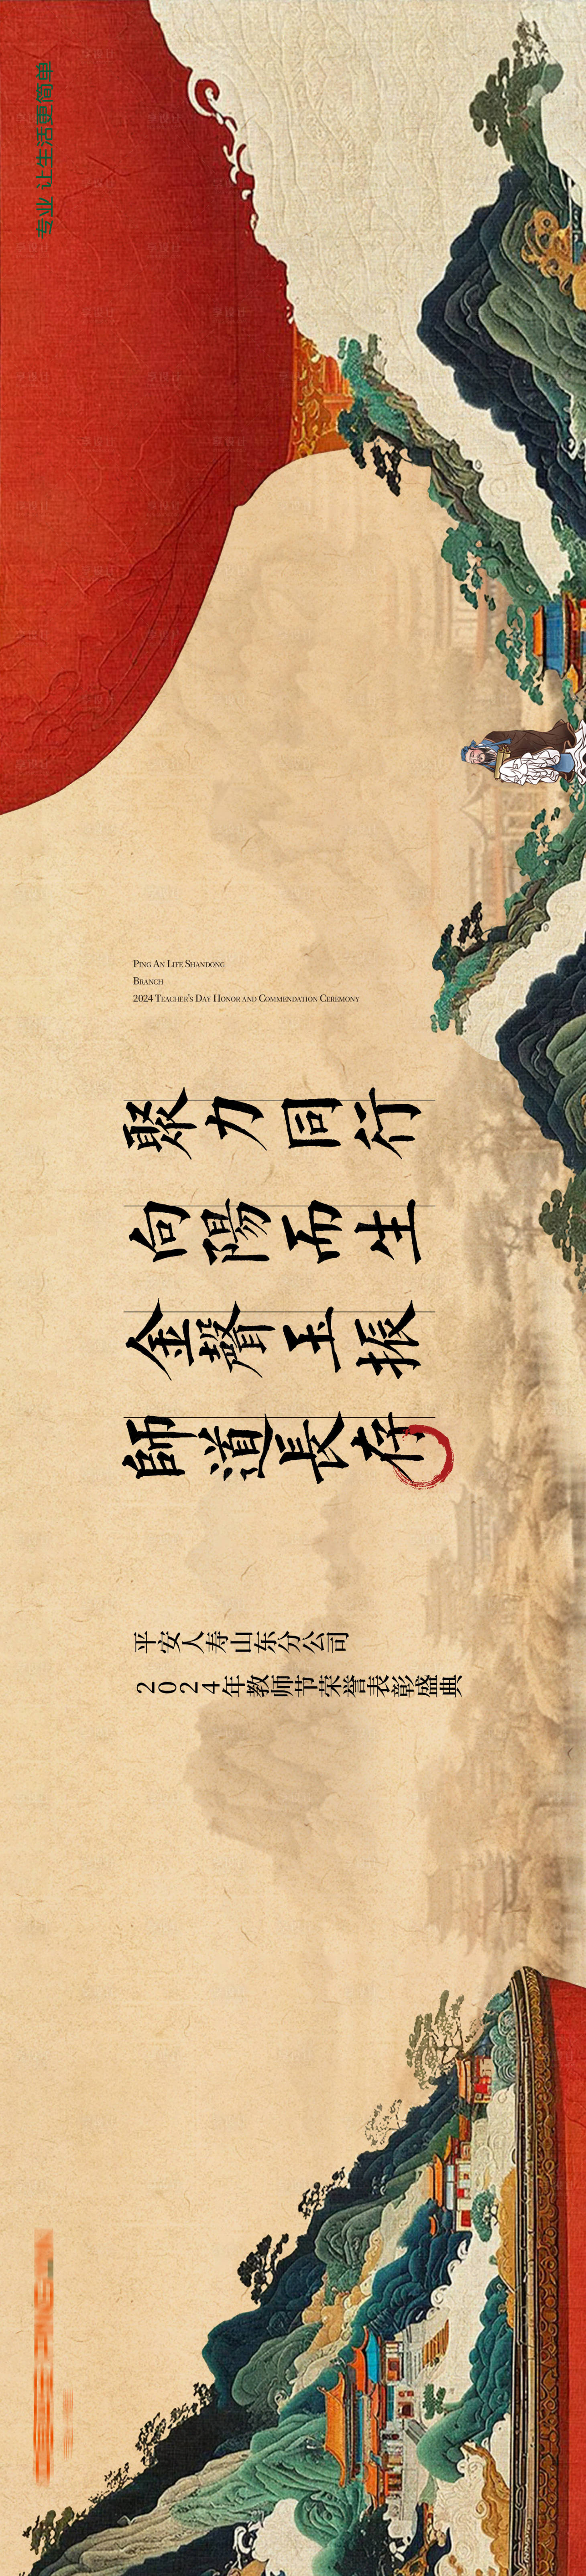 专业 让生活更简单
Ping An Life Shandong
Branch
2024 Teacher's Day Honor and Commendation Ceremony
聚力同行
向陽而生
金聲玉振
師道長存
平安人寿山东分公司
2024年教师节荣誉表彰盛典